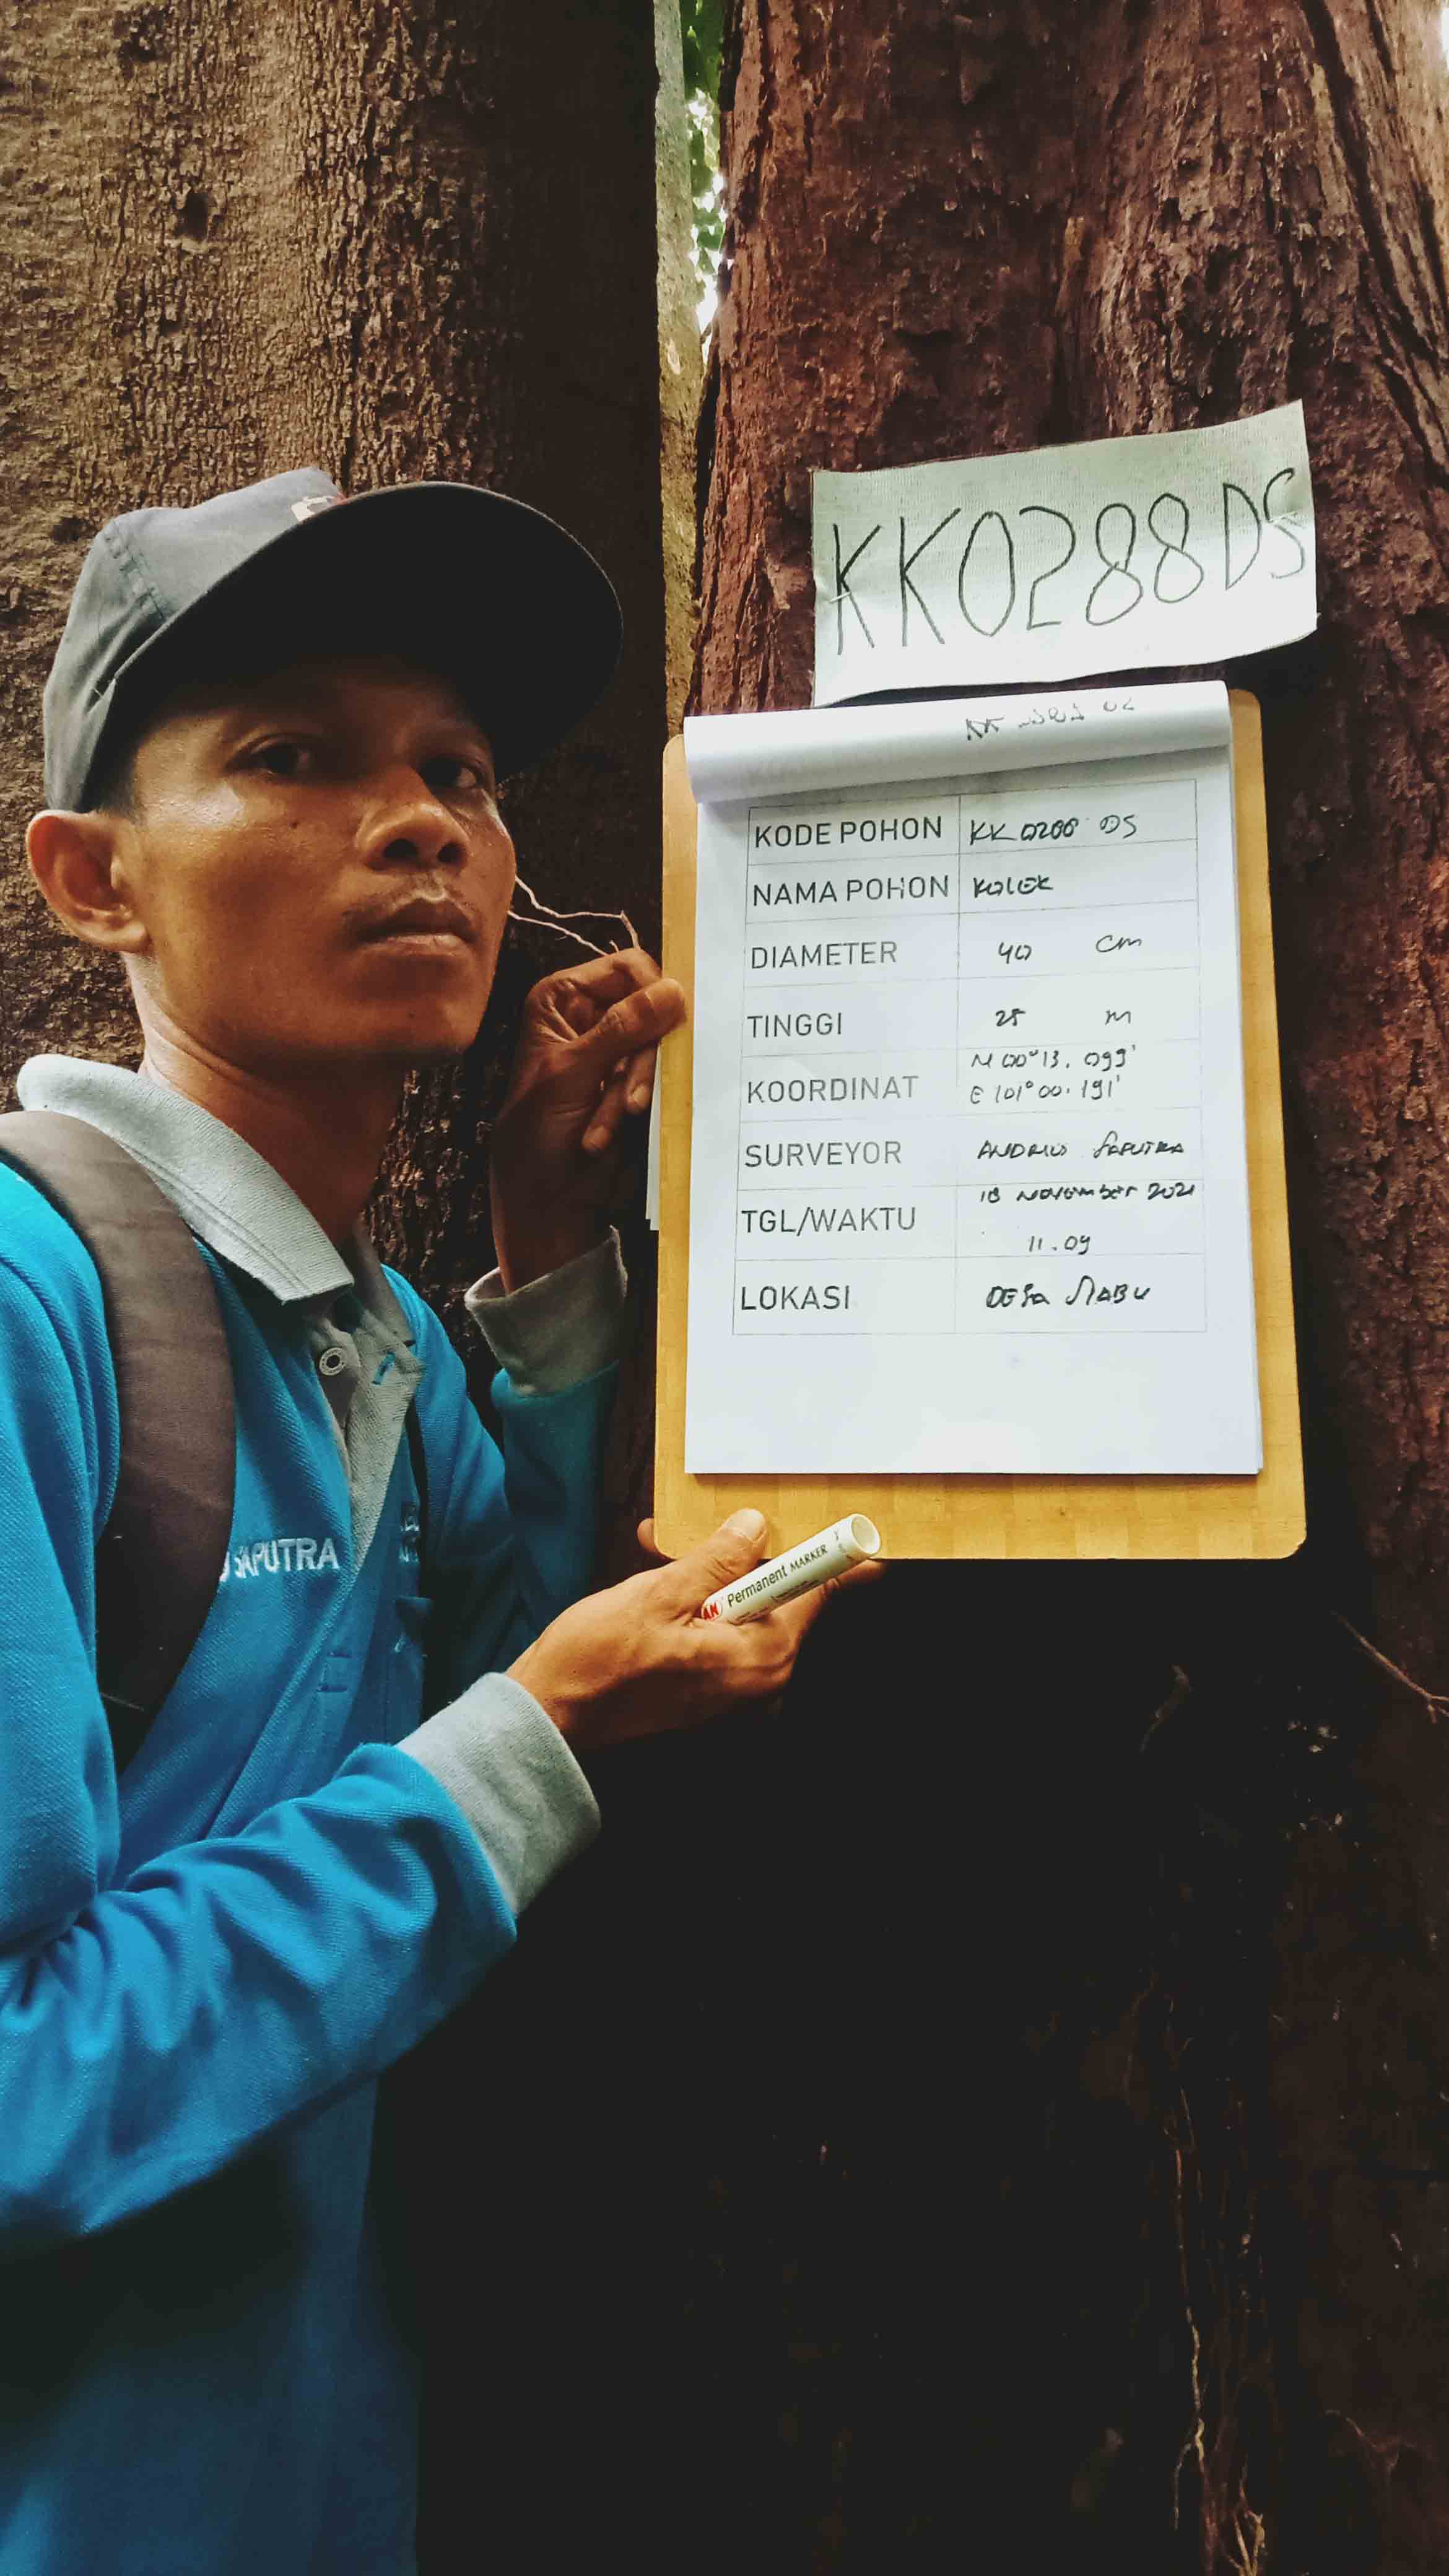 KK0288DS
KODE POHON KK 0288 DS
NAMA POHON KOLEK
DIAMETER 40 cm
TINGGI 25 m
KOORDINAT N 00°13.099'
E 101°00.191'
SURVEYOR ANDRIO SAPUTRA
TGL/WAKTU 18 NOVEMBER 2021
11.09
LOKASI DESA
SAPUTRA
Permanent MARKER